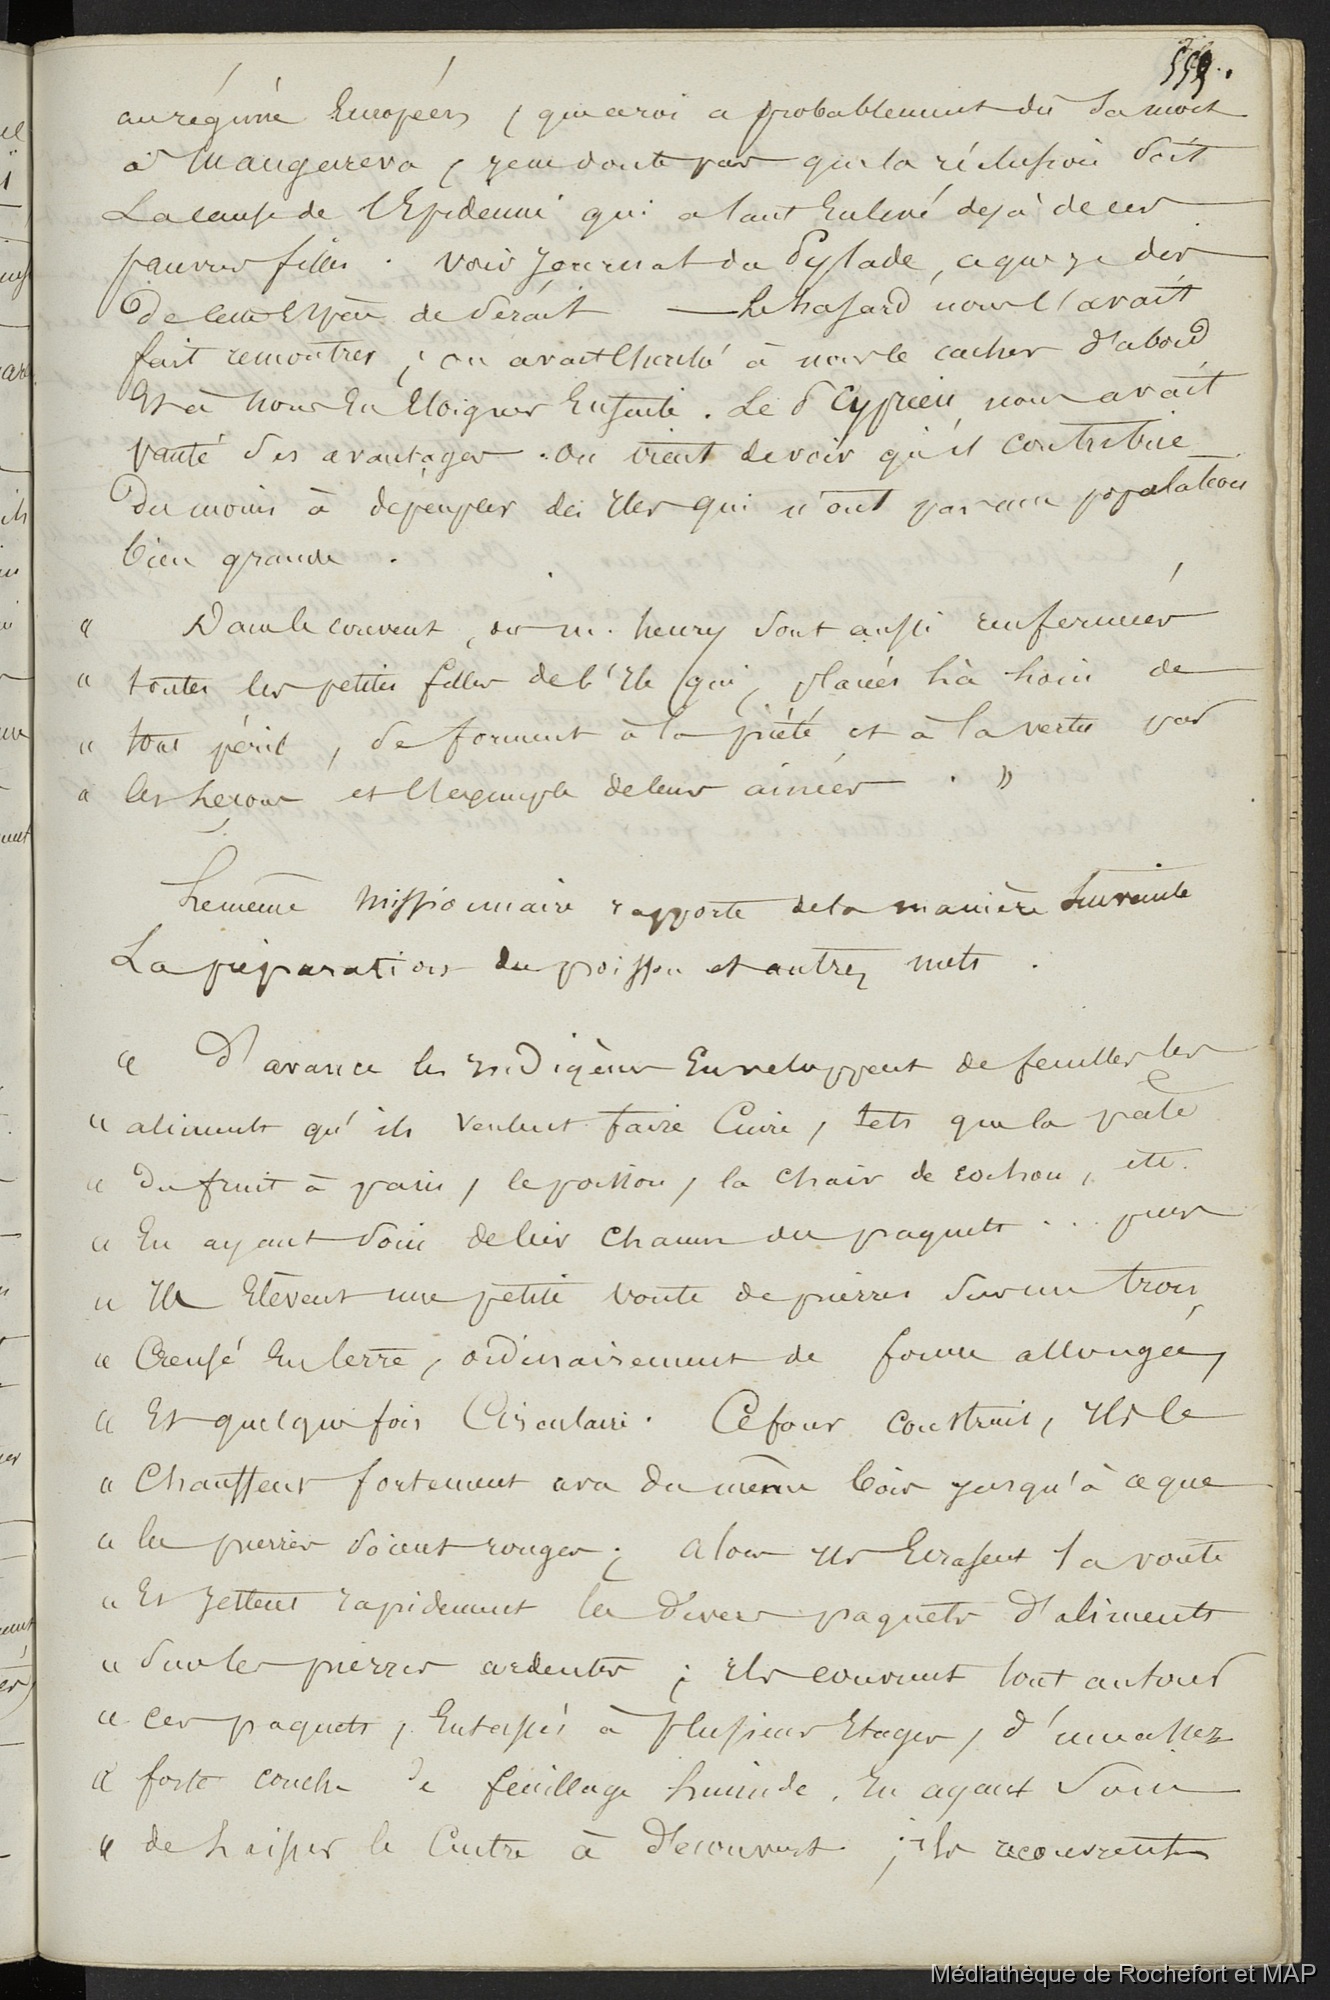 559.
au régime Européen, que ce roi a probablement dû sa mort
à Mangareva, je ne doute pas que la réclusion soit
La cause de l'Epidemie qui a tant Enlevé deja de ces
pauvres filles. voir Journal du Pylade, ce que je dis
De cette Espèce de Sérail — Le hasard nous l'avait
fait remontrer; on avait cherché à nous le cacher d'abord
Et à nous En Eloigner Ensuite. Le P Cyprien nous avait
vanté ses avantages. On vient de voir qu'il contribue
Du moins à dépeupler des Iles qui n'ont pas une population
bien grande.
" Dans le couvent, dit m. henry sont aussi renfermées
" toutes les petites filles de l'Ile qui, placées là loin de
" tout péril, se forment à la piété et à la vertu par
" les leçons et l'exemple de leurs ainées. "
Le même Missionnaire rapporte de la manière suivante
La préparation du poisson et autres mets.
" D'avance les Indigènes Enveloppent de feuilles les
" aliments qu'ils veulent faire Cuire, tels que la pâte
" Du fruit à pain, le poisson, la chair de cochon, etc.
" En ayant soin de lier chacun des paquets . . . puis
" Ils Elèvent une petite voute de pierres sur un trou
" Creusé En terre, ordinairement de forme allongée,
" Et quelquefois Circulaire. Ce four construit, Ils le
" Chauffent fortement avec du même bois jusqu'à ce que
" les pierres soient rouges; alors Ils Ecrasent la voute
" Et Jettent rapidement les divers paquets d'aliments
" Sur les pierres ardentes; Ils couvrent tout autour
" ces paquets, Entassés à plusieurs Etages, d'une assez
" forte couche de feuillage humide, En ayant soin
" de laisser le Centre à découvert; Ils recouvrent
Médiathèque de Rochefort et MAP